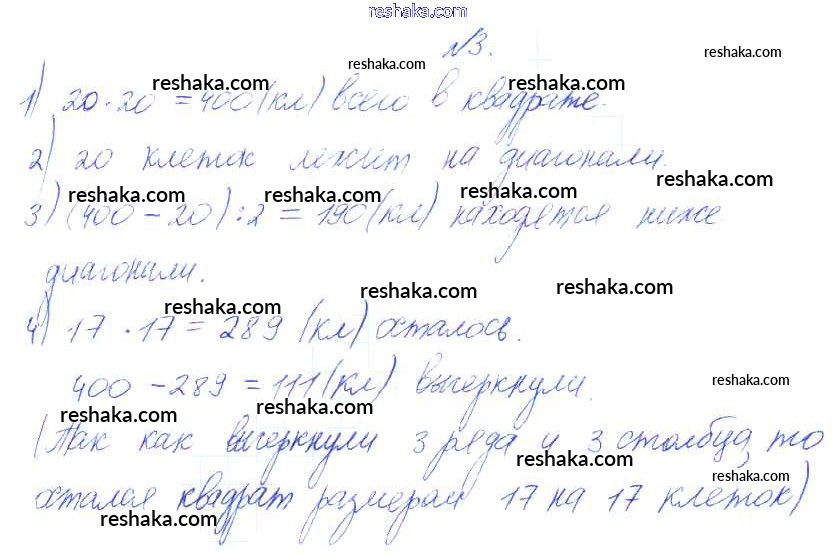 www.reshaka.com
№3.
reshaka.com reshaka.com
reshaka.com reshaka.com reshaka.com
1) 20·20=400(кл) всего в квадрате.
2) 20 клеток лежит на диагонали.
reshaka.com reshaka.com reshaka.com reshaka.com
3) (400-20):2=190(кл) находятся ниже
диагонали.
reshaka.com reshaka.com reshaka.com
4) 17·17=289 (кл) осталось.
400-289=111(кл) вычеркнули.
reshaka.com
reshaka.com reshaka.com
(Так как вычеркнули 3 ряда и 3 столбца, то
reshaka.com reshaka.com
остался квадрат размером 17 на 17 клеток)
reshaka.com reshaka.com